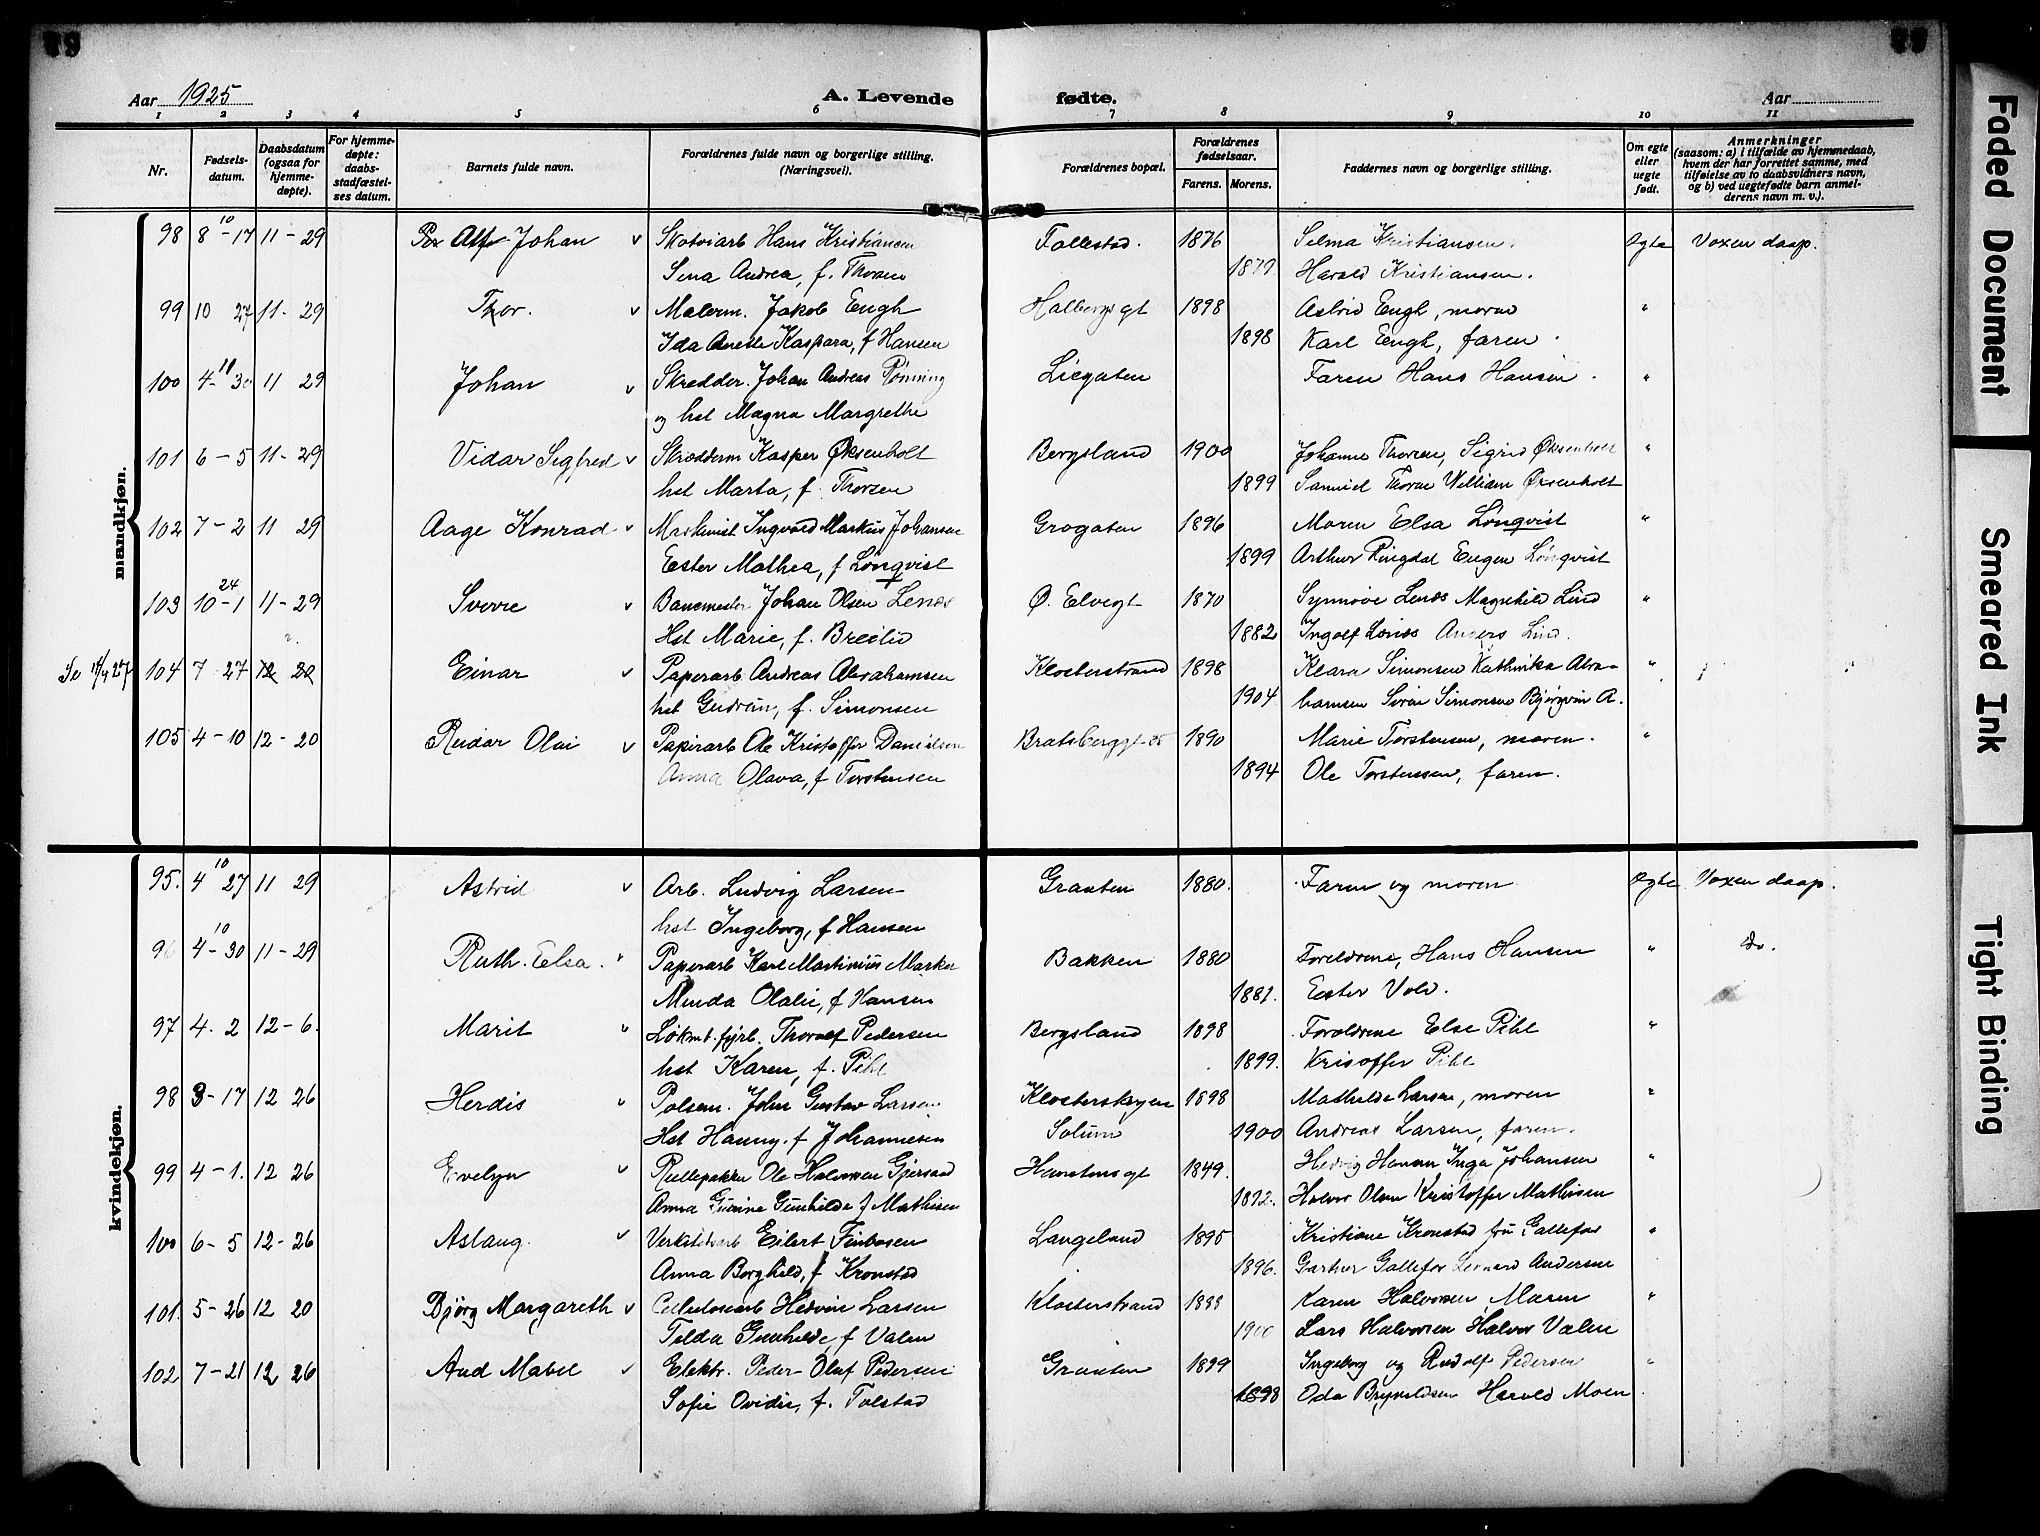 Aar 1925
A. Levende
fødte.
Aar
1 2 3 4 5 6 7 8 9 10 11
Nr.
Fødsels-datum.
Daabsdatum (ogsaa for hjemme-døpte).
For hjemme-døpte: daabs-stadfæstel-ses datum.
Barnets fulde navn.
Forældrenes fulde navn og borgerlige stilling. (Næringsvei).
Forældrenes bopæl.
Forældrenes fødselsaar.
Farens. Morens.
Faddernes navn og borgerlige stilling.
Om egte eller uegte født.
Anmerkninger
(saasom: a) i tilfælde av hjemmedaab, hvem der har forrettet samme, med tilføielse av to daabsvidners navn, og b) ved uegtefødte barn anmel-derens navn m. v.).
mandkjøn.
98 8 10-17 11-29 Alf Johan v Skotøiarb Hans Kristiansen Follestad. 1876 Selma Kristiansen. Ægte Voxen daap.
Sina Andrea, f. Thorsen 1879 Harald Kristiansen.
99 10 27 11-29 Thor. v Malerm. Jakob Engh 1898 Astrid Engh, moren "
Ida Anette Kaspara, f Hansen 1898 Karl Engh, faren.
100 4-10 30 11 29 Johan v Skredder. Johan Andreas Rønning Liegaten Faren Hans Hansen. "
og hst Magna Margrethe
101 6-5 11-29 Vidar Sigfred v Skrædderm Kasper Øksenholt Bergsland 1900 Johanne Thorsen, Sigrid Øksenholt "
hst Marta, f. Thorsen 1899 Samuel Thorsen William Øksenholt
102 7-2 11 29 Aage Konrad v Maskinist Ingvard Markus Johansen Grogaten 1896 Moren Elsa Lönqvist "
Ester Mathea, f Lönqvist 1899 Arthur Ringdal Eugen Lönqvist
103 10 24-1 11-29 Sverre v Banemester Johan Olsen Lenes Ø. Elvegt 1870 Synnøve Lenes Magnhild Lind "
Hst Marie, f. Breilid 1882 Ingolf Lenes Anders Lind.
104 7 27 12 20 Einar v Paperarb Andreas Abrahamsen Klosterstrand 1898 Klara Simonsen Kathinka Abra- "
hst Gudrun, f. Simonsen 1904 hamsen Sören Simonsen Bjørgvin A.
105 4-10 12-20 Reidar Olai v Papirarb Ole Kristoffer Danielsen Bratsberggt. 1890 Marie Torstensen, moren. "
Anna Olava, f Torstensen 1894 Ole Torstensen, faren.
kvindekjøn.
95. 4 10 27 11 29 Astrid v Arb. Ludvig Larsen Graaten 1880. Faren og moren Ægte Voxen daap.
hst Ingeborg, f Hansen
96 4-10 30 11-29 Ruth. Elsa. v Paperarb Karl Martinius Bakken 1880 Foreldrene, Hans Hansen " do.
Minda Olalie, f Hansen 1881. Ester Vold.
97 4. 2 12-6. Marit " Lokmt. fyrb. Thoralf Pedersen Bergsland 1898 Foreldrene Else Pihl "
hst Karen, f. Pihl 1899. Krisoffer Pihl
98 3-17 12 26 Herdis " Polsem. John Gustav Larsen Klosterskogen 1898 Mathilde Larsen, moren "
Hst Hanny. f Johannesen Solum 1900 Andreas Larsen, faren.
99 4-1. 12 26 Evelyn v Rullepakker Ole Halvorsen Gjersand 1849. Hedvig Hansen Inga Johansen "
Anna Gunhilde f Mathisen Halvor Olsen Kristoffer Mathisen
100 6-5 12-26 Aslaug. v Verkstedsarb Eilert Finbosen Langeland 1895 Kristiane Kronstad fru Gallefos "
Anna Borghild, f Kronstad 1896. Gartner Gallefos Lennard Andersen
101. 5-26 12 20 Bjørg Margareth v Celulosearb Hedvin Larsen Klosterstrand 1899 Karen Halvorsen, Maren "
Telda Gunhilde, f Valen 1900 Lars Halvorsen Halvor Valen
102 7-21 12 26 Aud Mabel v Elektr. Peder Oluf Pedersen Graaten 1899 Ingeborg og Rudolf Pedersen "
Sofie Ovidie, f. Tolstad 1898 Oda Brynildsen Harald Moen
Faded Document
Smeared Ink
Tight Binding